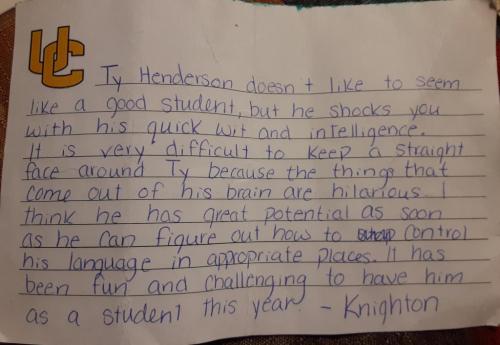 UC
Ty Henderson doesn't like to seem
like a good student, but he shocks you
with his quick wit and intelligence.
It is very difficult to keep a straight
face around Ty because the things that
come out of his brain are hilarious. I
think he has great potential as soon
as he can figure out how to control
his language in appropriate places. It has
been fun and challenging to have him
as a student this year. - Knighton